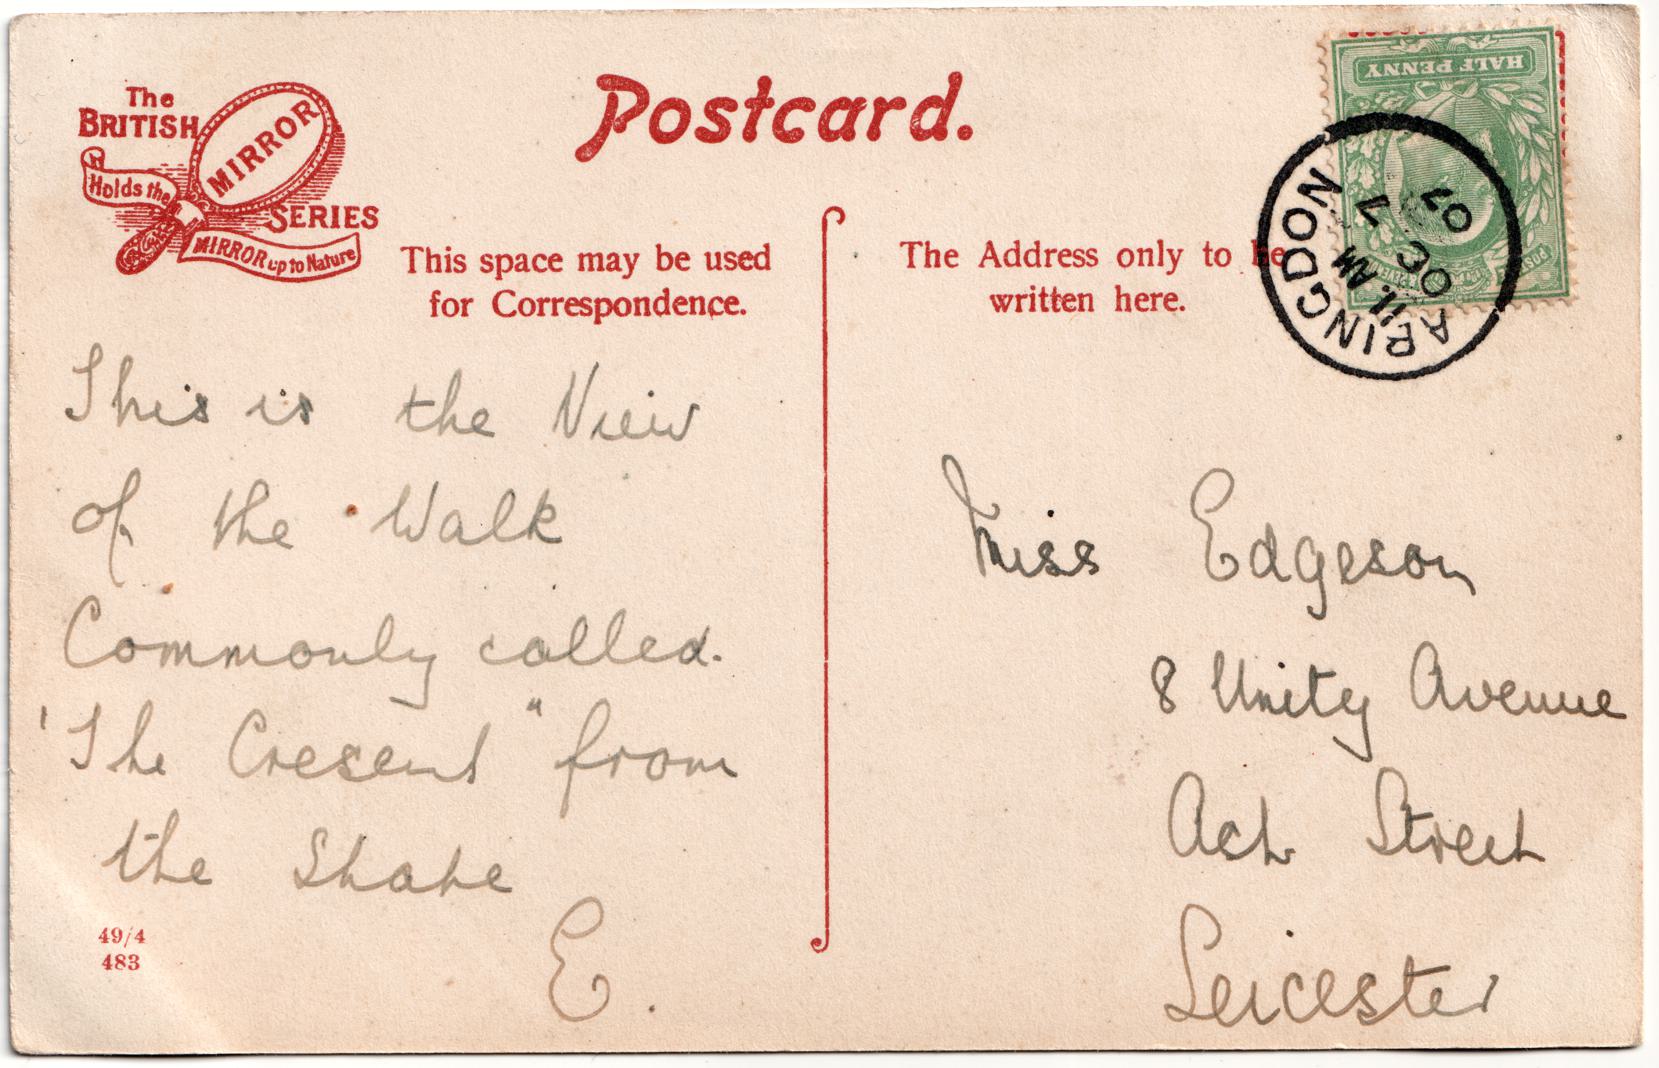 The
BRITISH
MIRROR
SERIES
Holds the
MIRROR up to Nature
Postcard.
This space may be used
for Correspondence.
The Address only to be
written here.
HALF PENNY
ABINGDON
11. AM
OC 7
07
This is the View
of the Walk
Commonly called.
'The Cresent" from
the Shape
E.
Miss Edgeson
8 Unity Avenue
Ash Street
Leicester
49/4
483